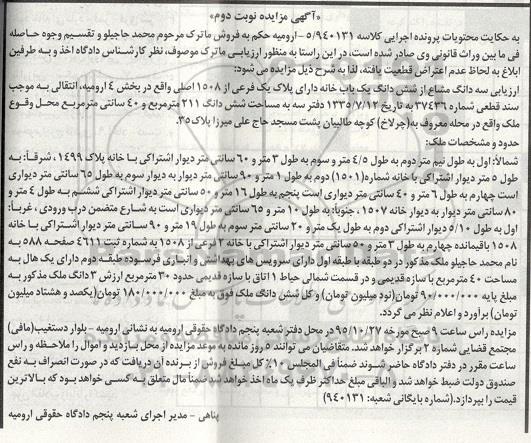 «آگهی مزایده نوبت دوم»
به حکایت محتویات پرونده اجرایی کلاسه ۵/۹۴۰۱۳۱- ارومیه حکم به فروش ماترک مرحوم محمد حاجیلو و تقسیم وجوه حاصله
فی ما بین وراث قانونی وی صادر شده است، در این راستا به منظور ارزیابی ماترک موصوف، نظر کارشناس دادگاه اخذ و به طرفین
ابلاغ به لحاظ عدم اعتراض قطعیت یافته، لذا به شرح ذیل مزایده می شود:
ارزیابی سه دانگ مشاع از شش دانگ یک باب خانه دارای پلاک یک فرعی از ۱۵۰۸ اصلی واقع در بخش ۴ ارومیه، انتقالی به موجب
سند قطعی شماره ۳۷۴۳۶ به تاریخ ۱۳۳۵/۷/۱۲ دفتر سه به مساحت شش دانگ ۲۱۱ مترمربع و ۴۰ سانتی مترمربع محل وقوع
ملک واقع در محله معروف به (چرلاخ) کوچه طالبیان پشت مسجد حاج علی میرزا پلاک ۳۵.
حدود و مشخصات ملک:
شمالاً: اول به طول نیم متر دوم به طول ۴/۵ متر و سوم به طول ۳ متر و ۶۰ سانتی متر دیوار اشتراکی با خانه پلاک ۱۴۹۹، شرقاً: به
طول ۵ متر دیوار اشتراکی با خانه شماره (۱۵۰۱) دوم به طول ۱ متر و ۹۰ سانتی متر دیوار به دیوار سوم به طول ۶۵ سانتی متر دیواری
است چهارم به طول ۶ متر و ۴۰ سانتی متر دیواری است پنجم به طول ۱۶ متر و ۵۰ سانتی متر دیوار اشتراکی ششم به طول ۴ متر و
۸۰ سانتی متر دیوار به دیوار خانه ۱۵۰۷ ، جنوباً: به طول ۱۰ متر و ۶۵ سانتی متر دیواری است به شارع متضمن درب ورودی ، غرباً:
اول به طول ۵/۱۰ دیوار اشتراکی دوم به طول یک متر و ۲۰ سانتی متر سوم به طول ۱۹ متر و ۹۰ سانتی متر اشتراکی با خانه
۱۵۰۸ باقیمانده چهارم به طول ۳ متر و ۵۰ سانتی متر دیوار اشتراکی با خانه ۲ فرعی از ۱۵۰۸ به شماره ثبت ۴۶۱۱ صفحه ۵۸۸ به
نام محمد حاجیلو ملک مذکور در دو طبقه با طبقه اول دارای سرویس های بهداشتی و انباری فرسوده طبقه دوم دارای یک هال به
مساحت ۴۰ مترمربع با سازه قدیمی و در قسمت شمالی حیاط ۱ اتاق با سازه قدیمی حدود ۳۰ مترمربع ارزش ۳ دانگ ملک مذکور به
مبلغ پایه ۹۰/۰۰۰/۰۰۰ تومان (نود میلیون تومان) و کل شش دانگ ملک فوق به مبلغ ۱۸۰/۰۰۰/۰۰۰ تومان (یکصد و هشتاد میلیون
تومان) برآورد و اعلام نظر می گردد.
مزایده راس ساعت ۹ صبح مورخه ۹۵/۱۰/۲۷ در محل دفتر شعبه پنجم دادگاه حقوقی ارومیه به نشانی ارومیه - بلوار دستغیب (مافی)
مجتمع قضایی شماره ۲ برگزار خواهد شد. متقاضیان می توانند ۵ روز مانده به موعد مزایده از محل بازدید و اموال را ملاحظه و راس
ساعت مقرر در دفتر دادگاه حاضر شوند ضمناً فی المجلس ۱۰٪ کل مبلغ فروش از برنده آن دریافت که در صورت انصراف به نفع
صندوق دولت ضبط خواهد شد و الباقی مبلغ حداکثر ظرف یک ماه اخذ خواهد شد ضمناً مال متعلق به کسی خواهد بود که بالاترین
قیمت را بپردازد. (شماره بایگانی شعبه: ۹۴۰۱۳۱)
پناهی - مدیر اجرای شعبه پنجم دادگاه حقوقی ارومیه